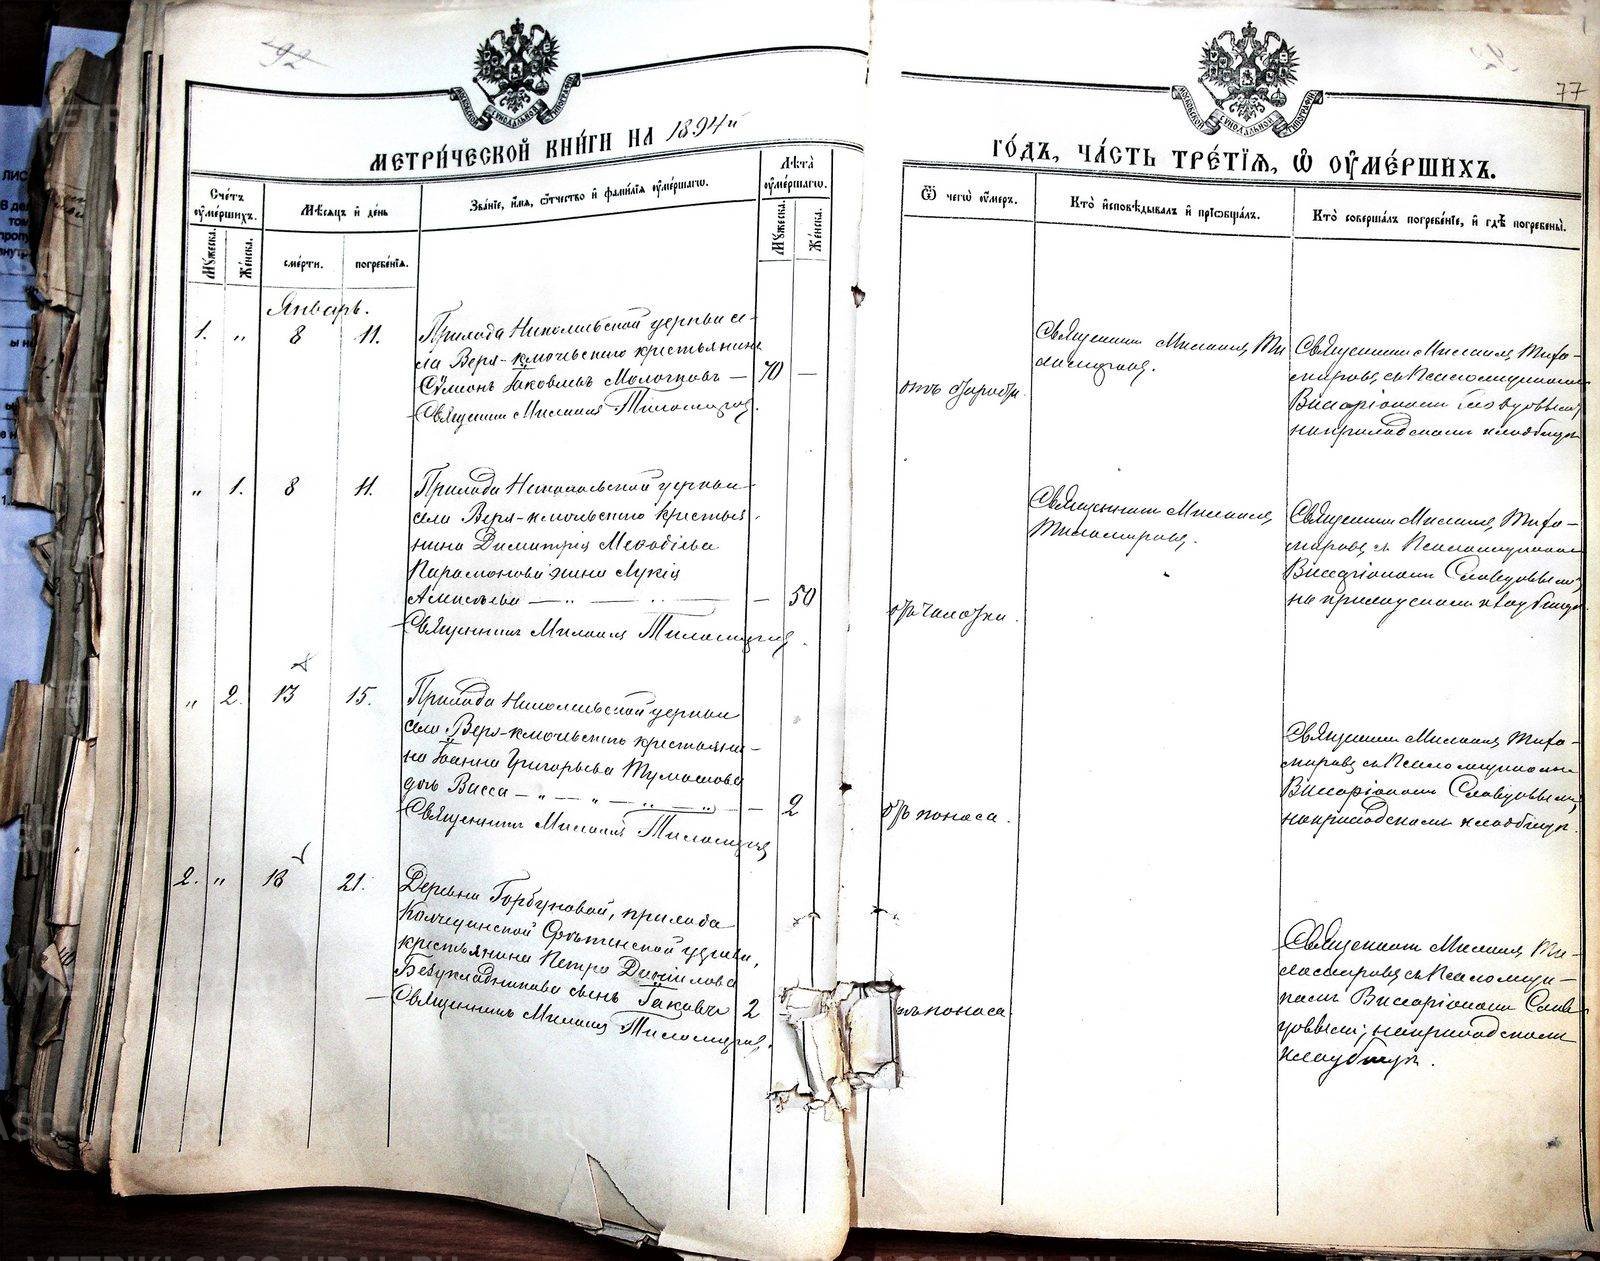 92
77
МЕТРИ́ЧЕСКОЙ КНИ́ГИ НА 1894й
ГО́ДЪ, ЧА́СТЬ ТРЕ́ТІЯ, Ѡ҆ ОУ҆МЕ́РШИХЪ.
Сче́тъ оу҆ме́ршихъ.
Му́жеска.
Же́нска.
Мѣ́сяцъ и҆ де́нь
сме́рти.
погребе́нїѧ.
Зва́нїе, и҆́мѧ, ѻ҆́тчество и҆ фами́лїѧ оу҆ме́ршагѡ.
Лѣ́та оу҆ме́ршагѡ.
Му́жеска.
Же́нска.
Ѿ чегѡ̀ оу҆́меръ.
Кто̀ и҆сповѣ́дывалъ и҆ прїѡбща́лъ.
Кто̀ соверша́лъ погребе́нїе, и҆ гдѣ̀ погребены̀.
Январь.
1. „ 8 11.
Прихода Николаевской церкви се-
ла Верх-ключевского крестьянинъ
Сѵмеонъ Іаковлевъ Молочковъ — 70 —
Священникъ Михаилъ Тихомировъ.
отъ старости.
Священникъ Михаилъ Ти
хомировъ.
Священникъ Михаилъ Тихо-
мировъ съ Псаломщикомъ
Виссаріономъ Словцовымъ
на приходскомъ кладбищѣ
„ 1. 8 11.
Прихода Николаевской церкви
села Верх-ключевского крестья-
нина Димитрія
Парамонова жена Лукія
— „ — „ — — 50
Священникъ Михаилъ Тихомировъ.
отъ чахотки.
Священникъ Михаилъ
Тихомировъ.
Священникъ Михаилъ Тихо-
мировъ съ Псаломщикомъ
Виссаріономъ Словцовымъ;
на приходскомъ кладбищѣ
„ 2. 13 15.
Прихода Николаевской церкви
села Верх-ключевского крестьяни-
на Іоанна Григорьева Тумашова
дочь Васса — „ — „ — „ — „ — 2
Священникъ Михаилъ Тихомировъ
отъ поноса.
Священникъ Михаилъ Тихо-
мировъ съ Псаломщикомъ
Виссаріономъ Словцовымъ;
на приходскомъ кладбищѣ.
2. „ 18 21.
Деревни Горбуновой, прихода
Колчеданской Срѣтенской церкви,
крестьянина Петра Даніилова
Безукладникова сынъ Іаковъ 2
Священникъ Михаилъ Тихомировъ.
отъ поноса.
Священникъ Михаилъ Ти-
хомировъ съ Псаломщи-
комъ Виссаріономъ Слов-
цовымъ; на приходскомъ
кладбищѣ.